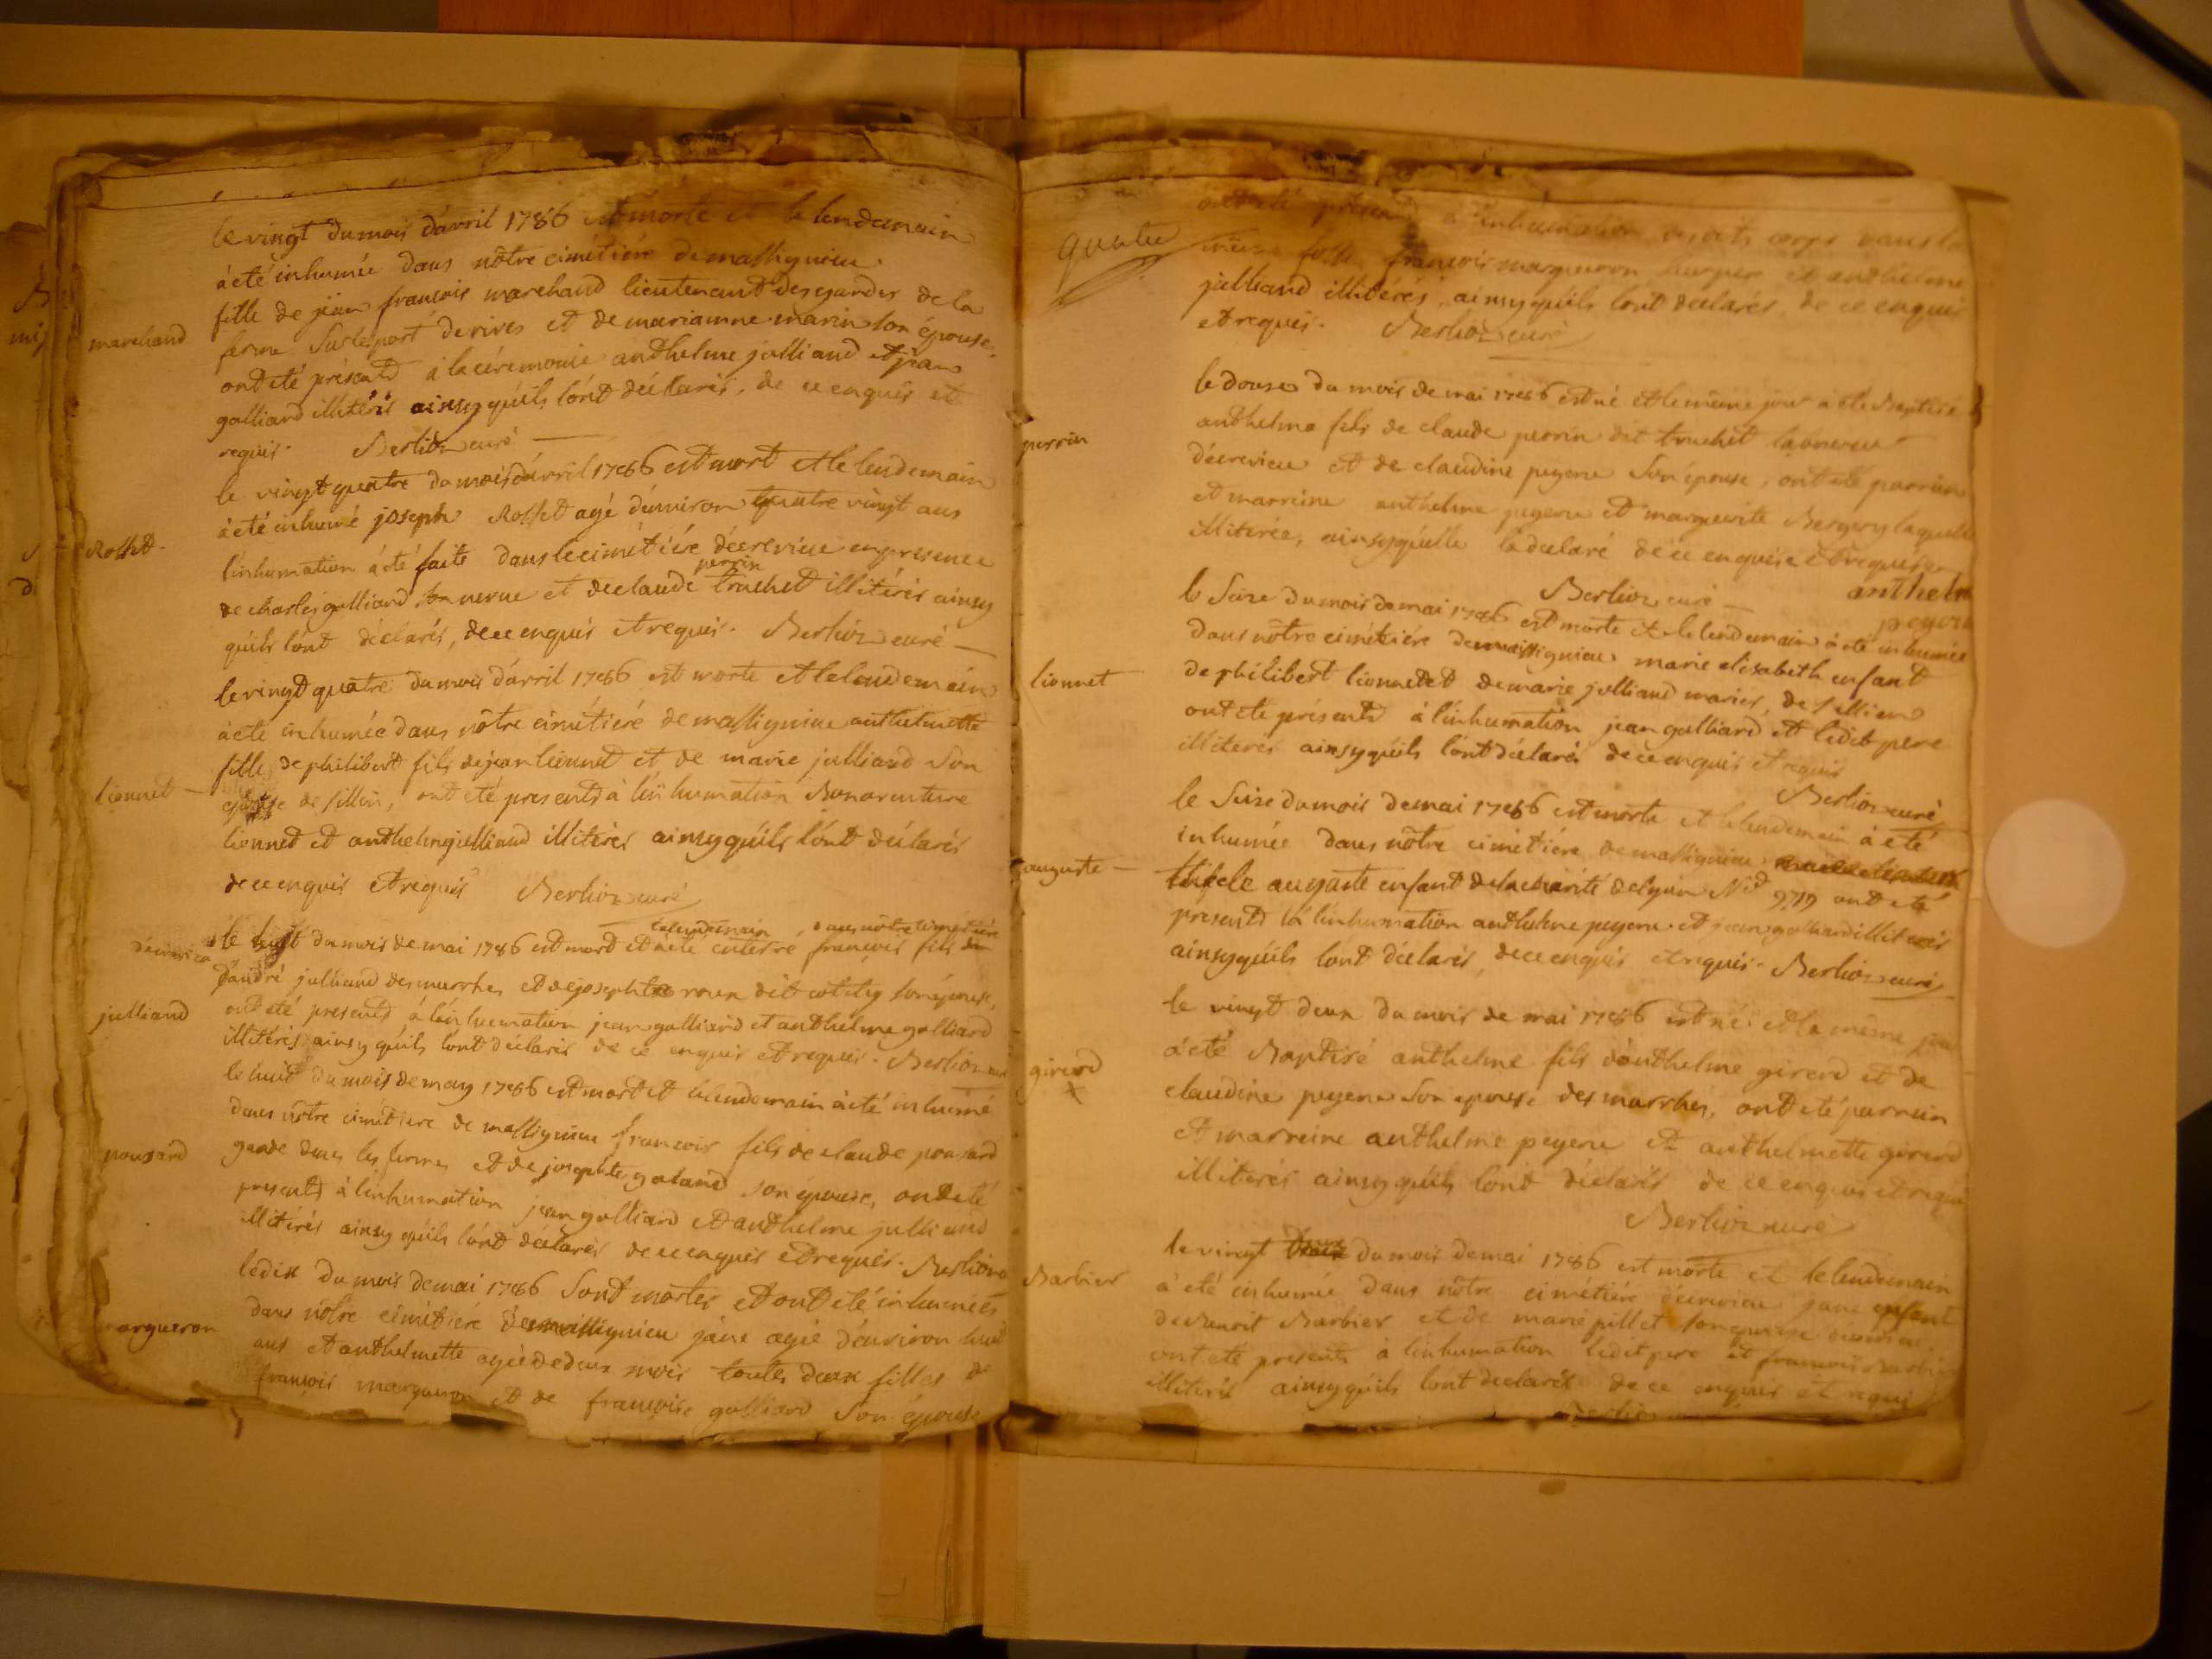 le vingt du mois d'avril 1786 est morte et le lendemain
à eté inhumée dans nôtre cimétiére de massignieu
fille de jean françois marchand lieutenant des gardes de la
marchand
ferme sur le port de rives et de marianne marin son épouse.
ont eté présents à la céremonie anthelme julliand et jean
galliand illitérés ainsy qu'ils l'ont déclarés, de ce enquis et
requis. Berlioz curé
le vingt quatre du mois d'avril 1786 est mort et le lendemain
à eté inhumé joseph Rosset agé d'environ quatre vingt ans
Rosset.
l'inhumation à été faite dans le cimétiére d'écrivieu en presence
de charles galliand son neveu et de claude perrin truchet illitérés ainsy
qu'ils l'ont déclarés, de ce enquis et requis. Berlioz curé
le vingt quatre du mois d'avril 1786 est morte et le lendemain
à eté inhumée dans nôtre cimétiére de massignieu anthelmette
fille de philibert fils de jean lionnet et de marie julliand son
lionnet
épouse de sillin, ont eté presents à l'inhumation Bonaventure
lionnet et anthelme julliand illitérés ainsy qu'ils l'ont déclarés
de ce enquis et requis Berlioz curé
le lendemain, dans nôtre cimétiére
le huit du mois de mai 1786 est mort et à eté enterré françois fils
d'écrivieu
d'andré julliand des murrhes et de josephte roux dit cottity son épouse,
julliand
ont eté presents à l'inhumation jean galliard et anthelme galliard
illitérés ainsy qu'ils l'ont déclarés de ce enquis et requis. Berlioz curé
le huit du mois de may 1786 est mort et le lendemain à eté inhumé
dans nôtre cimétiere de massignieu françois fils de claude ponsard
ponsard
garde dans les fermes et de josephte galand son épouse, ont eté
presents à l'inhumation jean galliard et anthelme julliand
illitérés ainsy qu'ils l'ont déclarés de ce enquis et requis. Berlioz
le dix du mois de mai 1786 sont mortes et ont eté inhumées
dans nôtre cimétiére de massignieu jane agée d'environ huit
margueron
ans et anthelmette agée de deux mois toutes deux filles de
françois margueron et de françoise galliard son épouse
ont eté présents à l'inhumation corps dans la
quatre
même fosse françois margueron leur pere et anthelme
julliand illitérés, ainsy qu'ils l'ont déclarés, de ce enquis
et requis. Berlioz curé
le douse du mois de mai 1786 est né et le même jour à eté Baptisé
anthelme fils de claude perrin dit truchet laboureur
perrin
d'écrivieu et de claudine peyene son épouse, ont eté parrain
et marreine anthelme peyene et marguerite Bergery laquelle
illiterée, ainsy qu'elle l'a déclaré de ce enquise et requise
Berlioz curé anthelm
le seize du mois de mai 1786 est morte et le lendemain à eté inhumée
dans nôtre cimétiére de massignieu marie elisabeth enfant
lionnet
de philibert lionnet et de marie julliand mariés, de sillien
ont eté présents à l'inhumation jean galliard et ledit pere
illiterés ainsy qu'ils l'ont déclarés de ce enquis et requis
Berlioz curé
le seize du mois de mai 1786 est morte et le lendemain à eté
inhumée dans nôtre cimétiére de massignieu
auguste
thécle auguste enfant de la charité de lyon ont eté
presents à l'inhumation anthelme peyene et jean galliard illiterés
ainsy qu'ils l'ont déclarés, de ce enquis et requis. Berlioz curé
le vingt deux du mois de mai 1786 est né et le même jou
à eté Baptisé anthelme fils d'anthelme girerd et de
girerd
claudine peyene son epouse des marrhes, ont eté parrain
et marreine anthelme peyene et anthelmette girerd
illiterés ainsy qu'ils l'ont déclarés de ce enquis et requis
Berlioz curé
le vingt du mois de mai 1786 est morte et le lendemain
Barbier
à eté inhumée dans nôtre cimétiére d'écrivieu jane enfant
de Benoit Barbier et de marie pillet son épouse d'écrivieu
ont eté presents à l'inhumation ledit pere et françois Barbier
illiterés ainsy qu'ils l'ont déclarés de ce enquis et requis
Berlioz